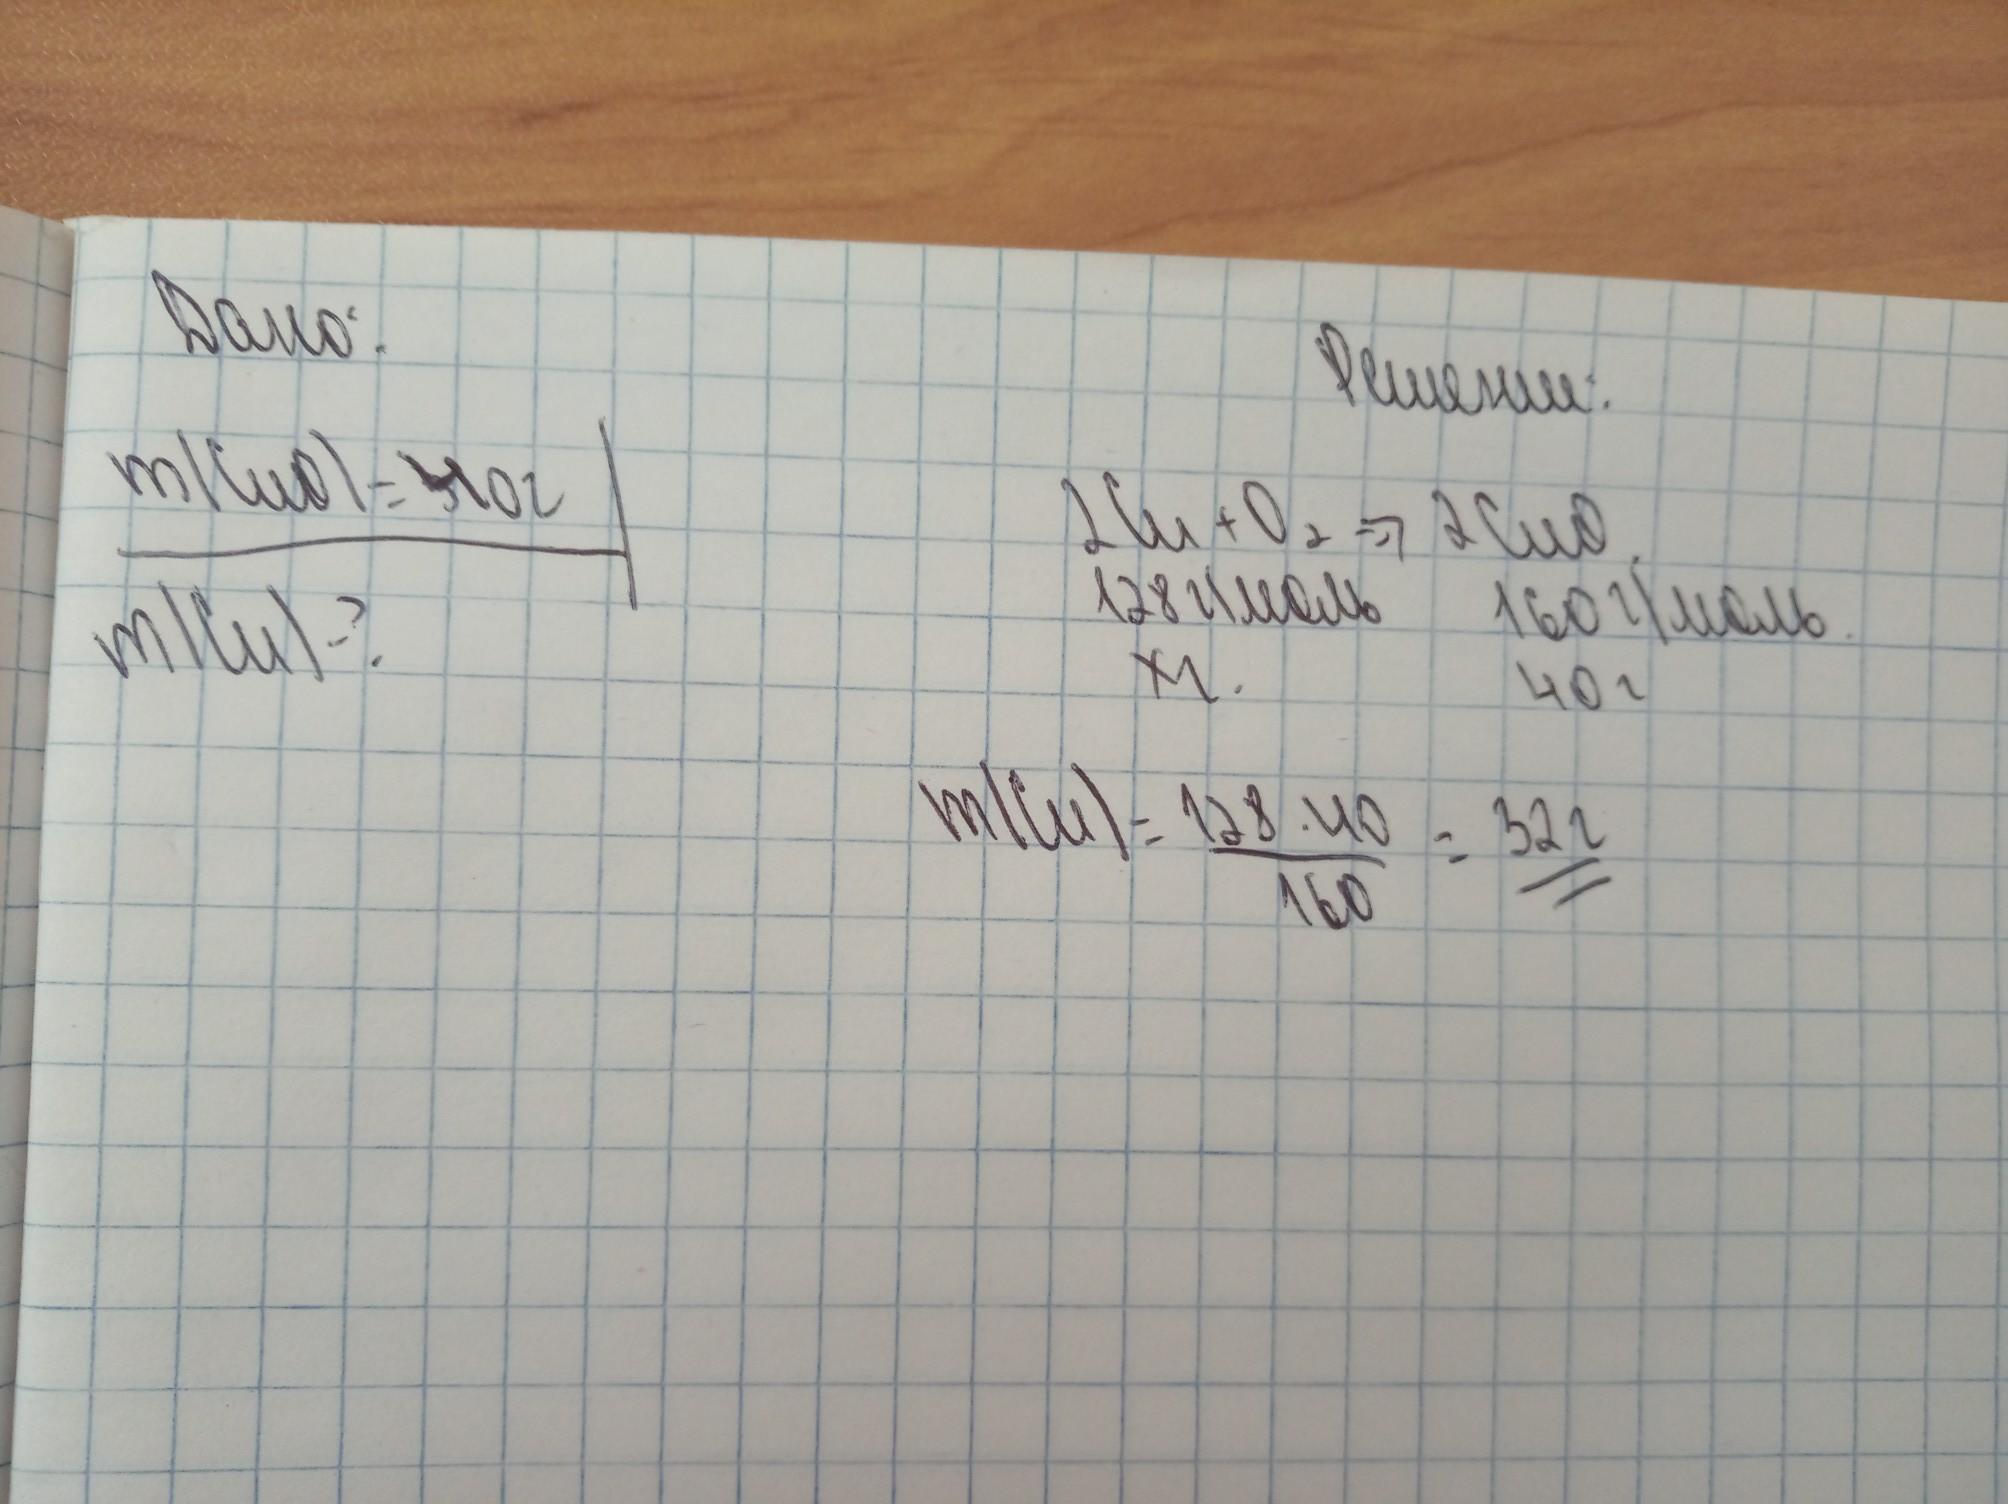 Дано:
m(CuO)=40г
m(Cu)-?
Решение:
2Cu+O₂ => 2CuO.
128г/моль 160г/моль.
xг. 40г
m(Cu)= 128·40 = 32г
160